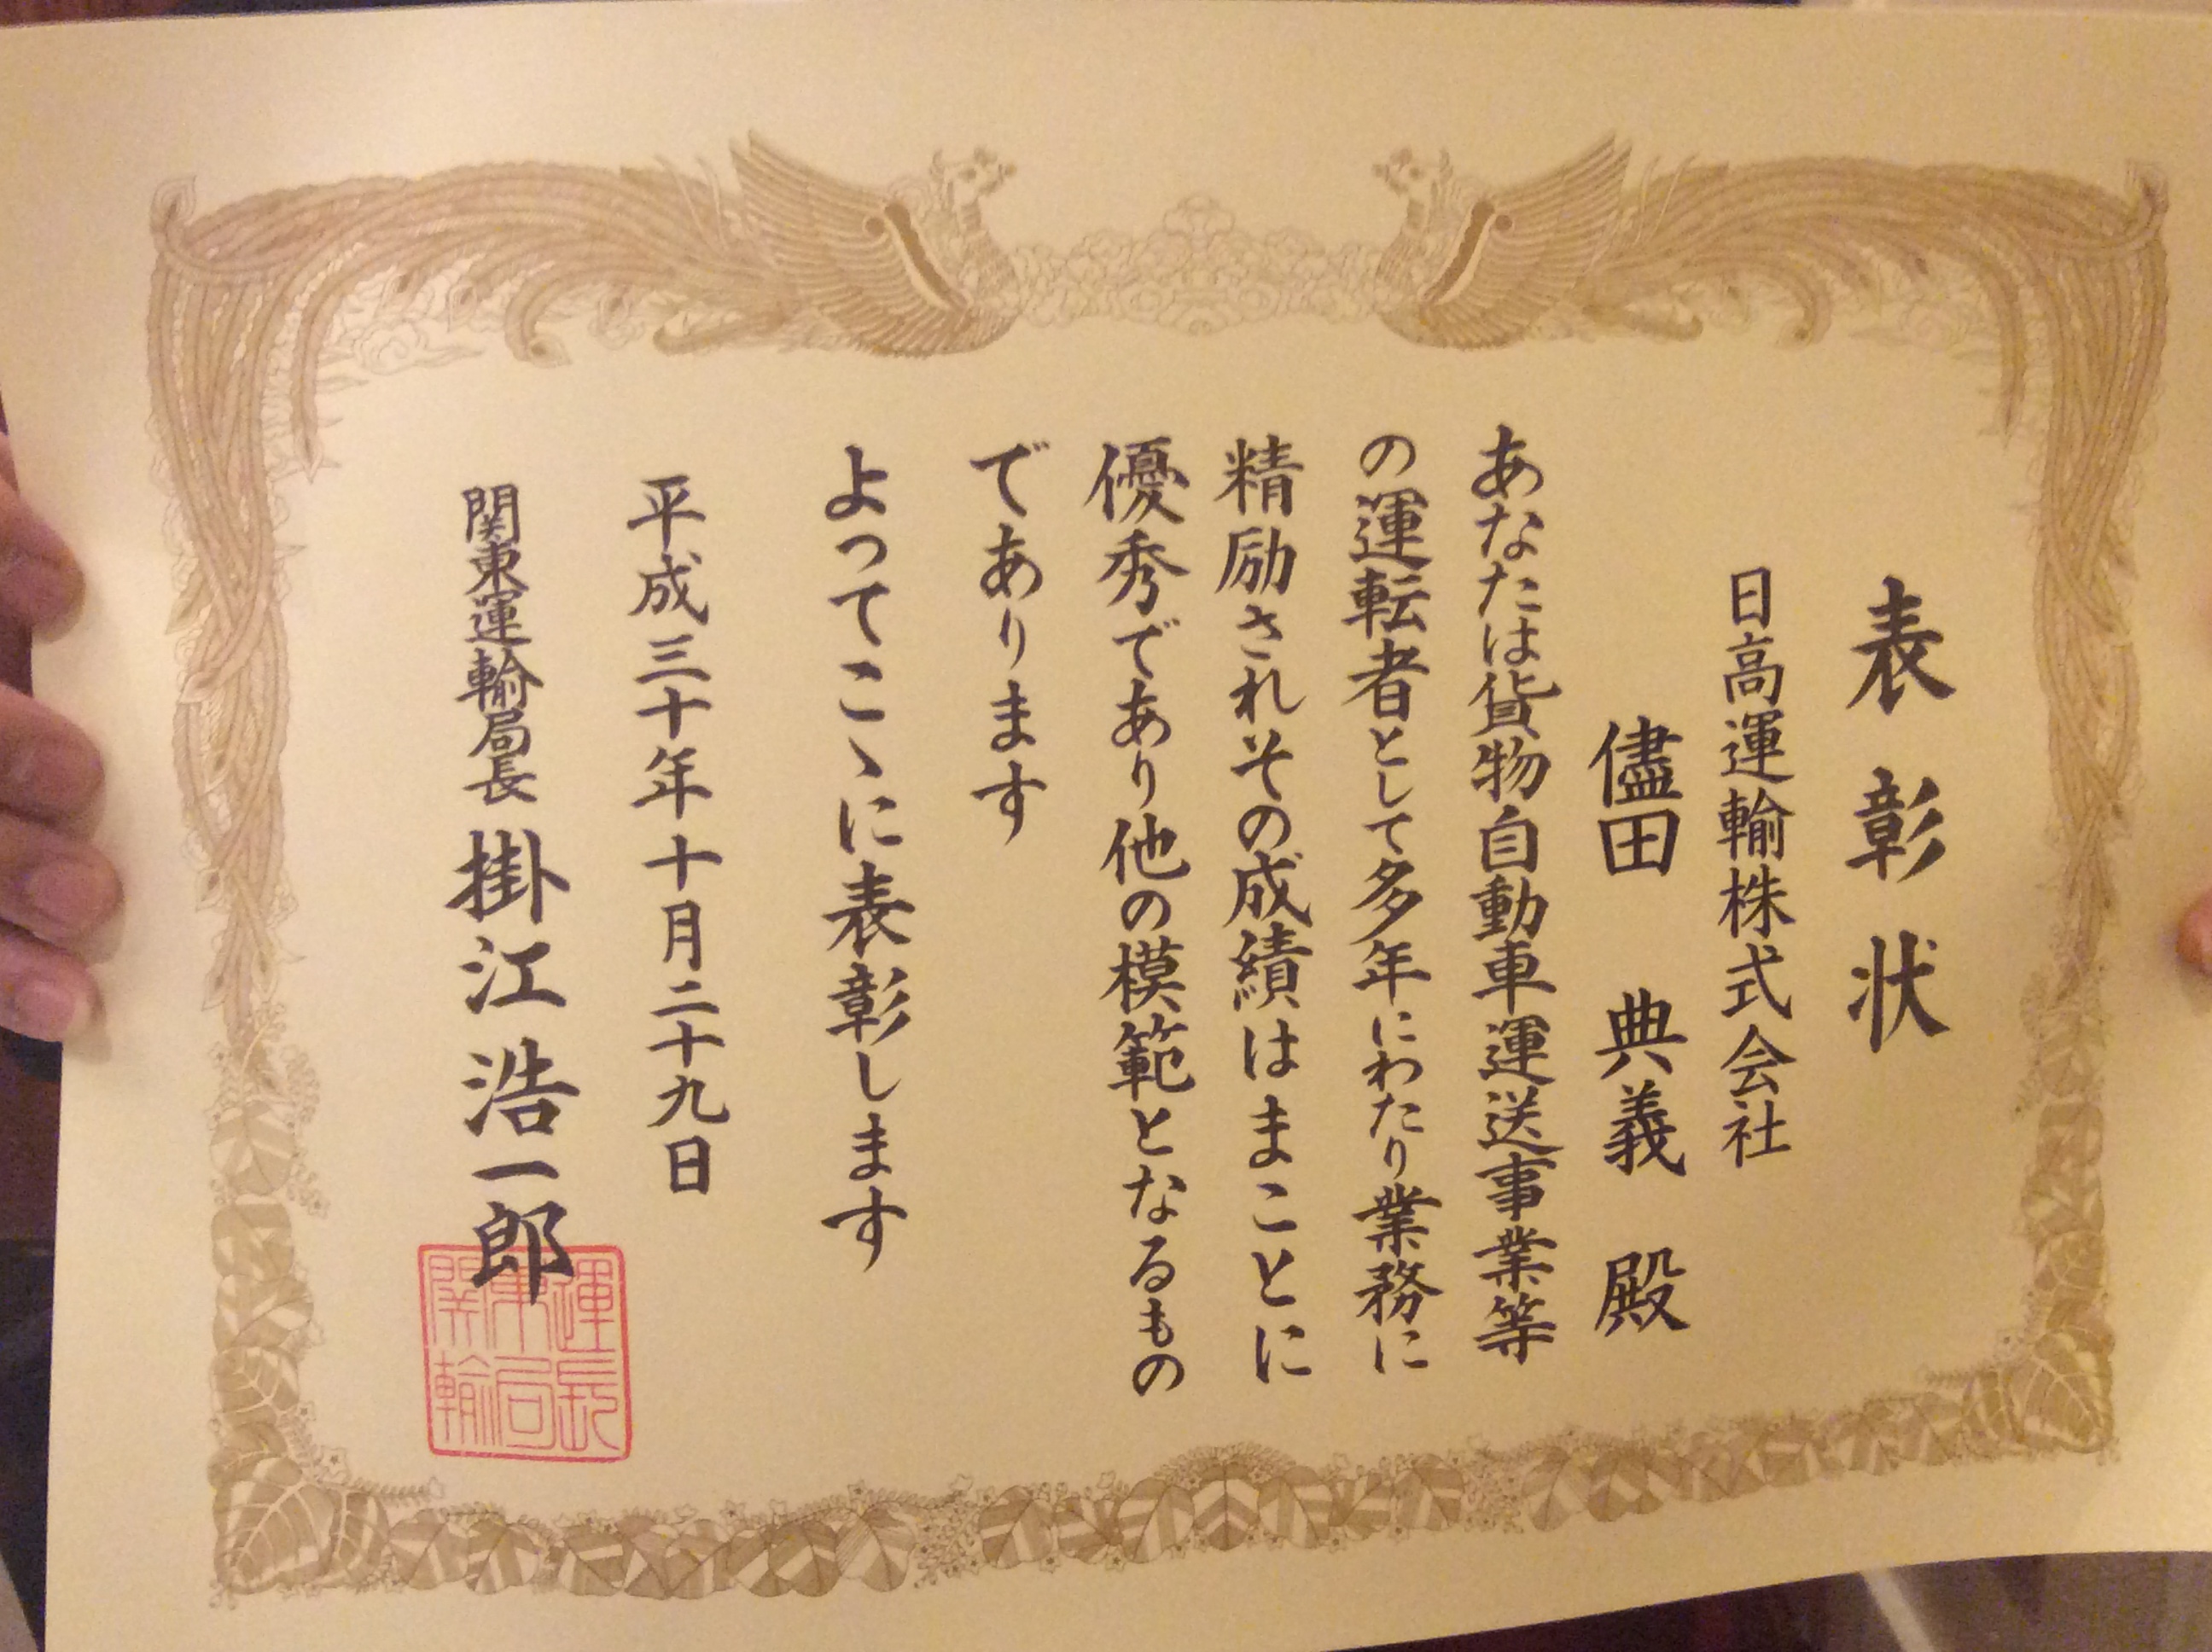 表彰状
日高運輸株式会社
儘田 典義 殿
あなたは貨物自動車運送事業等
の運転者として多年にわたり業務に
精励されその成績はまことに
優秀であり他の模範となるもの
であります
よってこゝに表彰します
平成三十年十月二十九日
関東運輸局長 掛江浩一郎
運長
東局
関輸